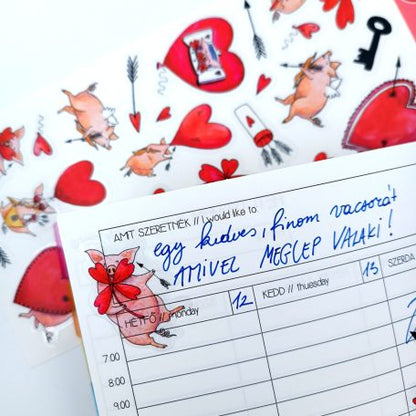 AMIT SZERETNÉK // I would like to
egy kedves, finom vacsorát
AMIVEL MEGLEP VALAKI!
HÉTFŐ // monday 12
KEDD // thuesday 13
SZERDA
7:00
8:00
9:00